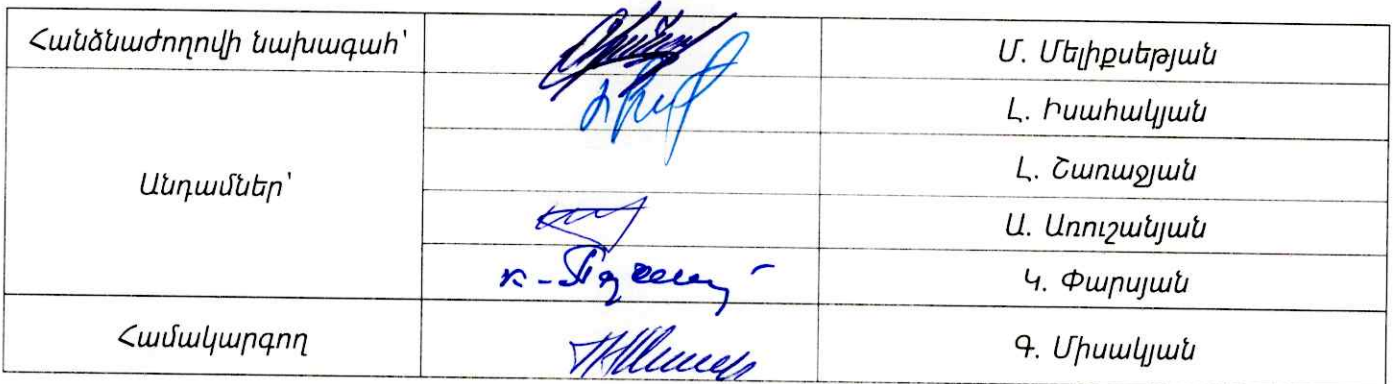 Հանձնաժողովի նախագահ՝ Մ. Մելիքսեթյան
Լ. Իսահակյան
Անդամներ՝ Լ. Շառաջյան
Ա. Առուշանյան
Կ. Փարսյան
Համակարգող Գ. Միսակյան